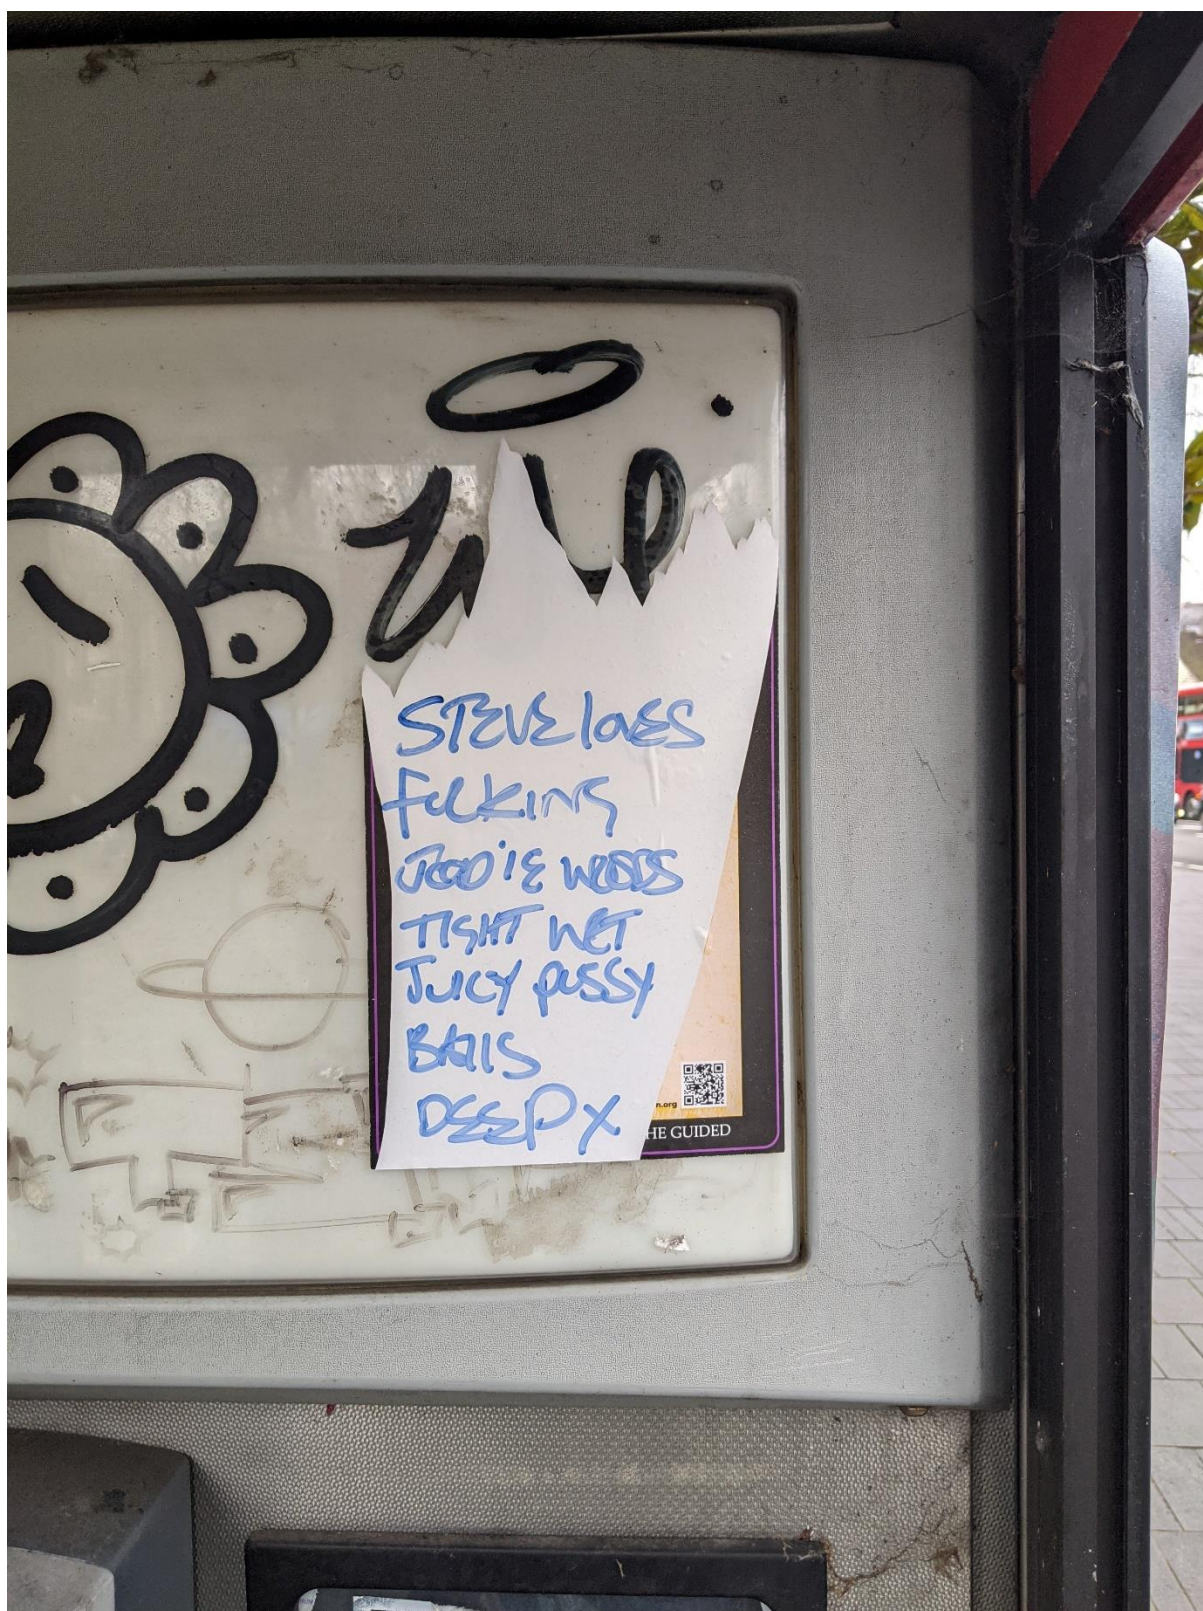 STEVE loves
fucking
JOODIE WOODS
TIGHT WET
JUICY pussy
BALLS
DEEP X
n.org
HE GUIDED